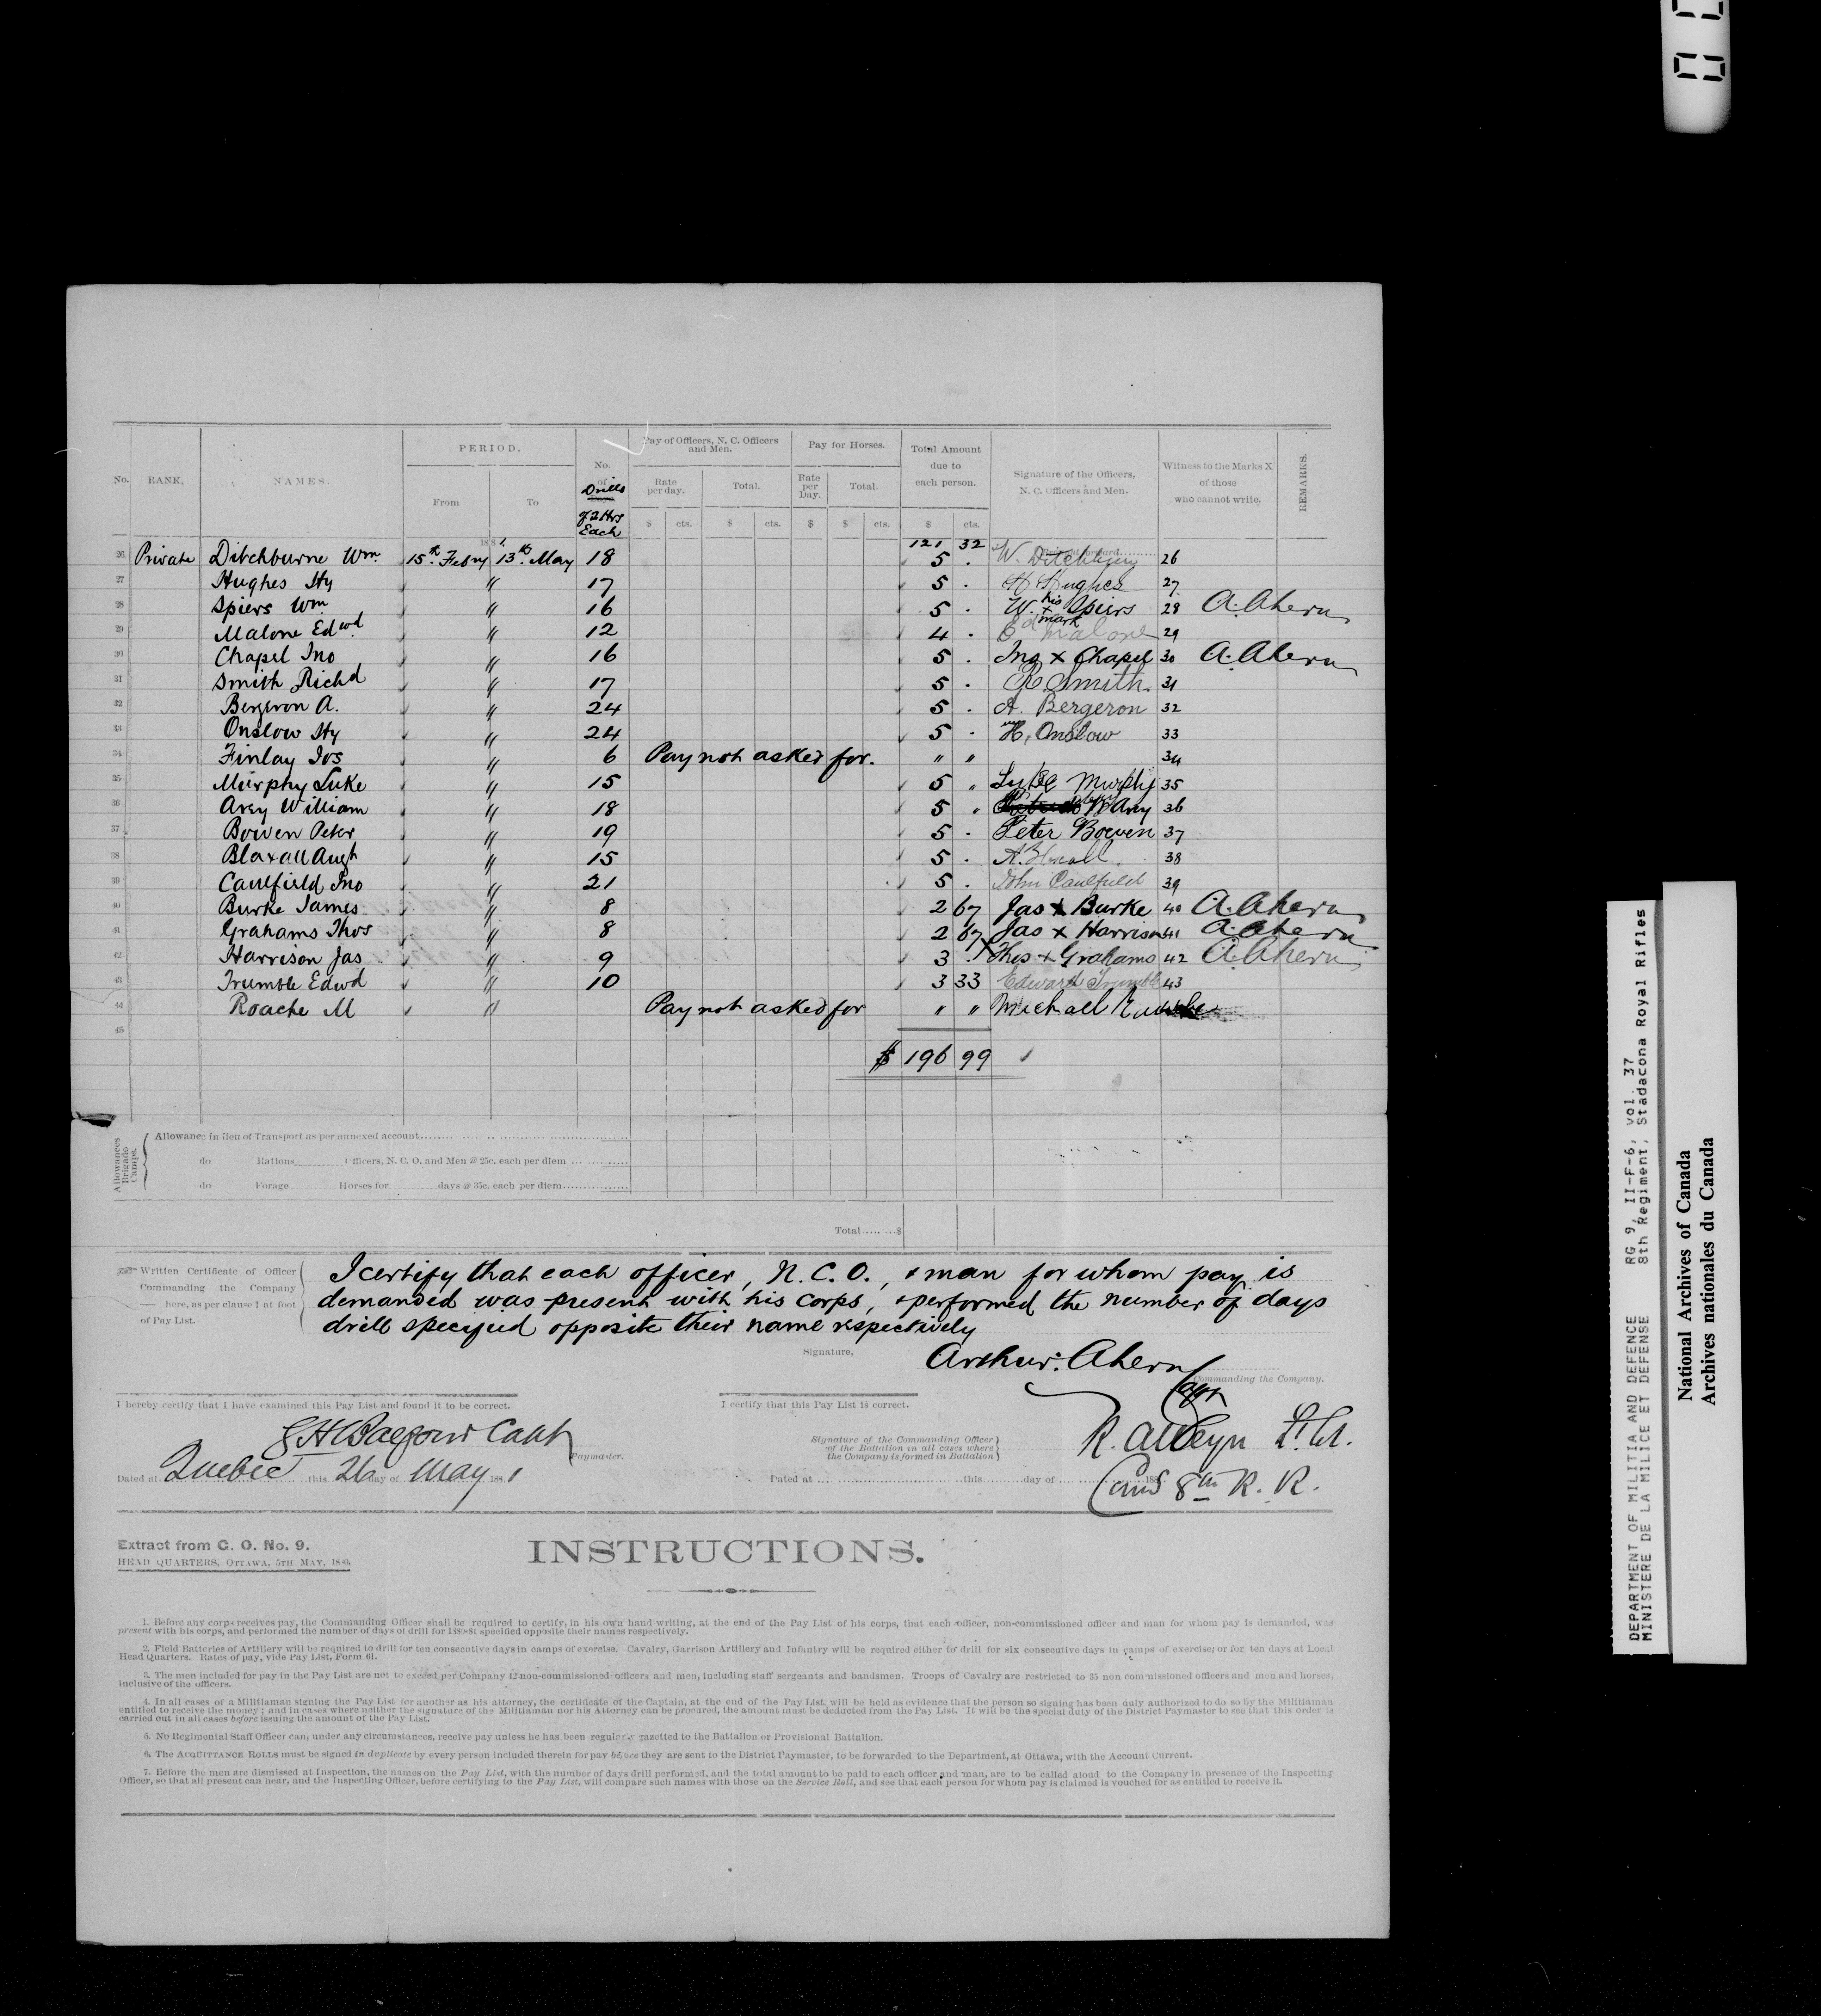 No. RANK, NAMES. PERIOD. From To No. of Drills of 2 Hrs Each Pay of Officers, N. C. Officers and Men. Rate per day. Total. Pay for Horses. Rate per Day. Total. Total Amount due to each person. Signature of the Officers, N. C. Officers and Men. Witness to the Marks X of those who cannot write. REMARKS.
$ cts. $ cts. $ $ cts. $ cts.
1881. 121 32
26 Private Ditchburne Wm. 15th Febry 13th May 18 5 . W. Ditchburn 26
27 Hughes Hy " 17 5 . H Hughes 27
28 Spiers Wm " 16 5 . W. his x mark Spiers 28 A. Ahern
29 Malone Edwd " 12 4 . Ed Malone 29
30 Chapel Jno " 16 5 . Jno x Chapel 30 A. Ahern
31 Smith Richd " 17 5 . R Smith. 31
32 Bergeron A. " 24 5 . A. Bergeron 32
33 Onslow Hy " 24 5 . H, Onslow 33
34 Finlay Jos " 6 Pay not asked for. " " 34
35 Murphy Luke " 15 5 " Luke Murphy 35
36 Avey William " 18 5 " W Avey 36
37 Bowen Peter " 19 5 . Peter Bowen 37
38 Blaxall Augt " 15 5 . 38
39 Caulfield Jno " 21 5 . John Caulfield 39
40 Burke James " 8 2 67 Jas x Burke 40 A. Ahern
41 Grahams Thos " 8 2 67 Jas x Harrison 41 A. Ahern
42 Harrison Jas " 9 3 . Thos x Grahams 42 A. Ahern
43 Trumble Edwd " 10 3 33 Edward Trumble 43
44 Roache M " Pay not asked for " " Michall
45
$ 196 99
Allowances Brigade Camps.
Allowance in lieu of Transport as per annexed account
do Rations Officers, N. C. O. and Men @ 25c. each per diem
do Forage Horses for days @ 35c. each per diem
Total $
Written Certificate of Officer Commanding the Company here, as per clause 1 at foot of Pay List.
I certify that each officer, N. C. O., & man for whom pay is
demanded was present with his corps, & performed the number of days
drill specifyed opposite their name respectively
Signature, Arthur. Ahern Capt
Commanding the Company.
I hereby certify that I have examined this Pay List and found it to be correct.
I certify that this Pay List is correct.
Capt Paymaster.
Signature of the Commanding Officer of the Battalion in all cases where the Company is formed in Battalion
R. Alleyn Lt. Cl.
Dated at Quebec this 26 day of May 1881
Dated at this day of 188
Comd 8th R. R.
Extract from G. O. No. 9.
HEAD QUARTERS, OTTAWA, 5TH MAY, 1880.
INSTRUCTIONS.
1. Before any corps receives pay, the Commanding Officer shall be required to certify, in his own hand-writing, at the end of the Pay List of his corps, that each officer, non-commissioned officer and man for whom pay is demanded, was
present with his corps, and performed the number of days of drill for 1880-81 specified opposite their names respectively.
2. Field Batteries of Artillery will be required to drill for ten consecutive days in camps of exercise. Cavalry, Garrison Artillery and Infantry will be required either to drill for six consecutive days in camps of exercise; or for ten days at Local
Head Quarters. Rates of pay, vide Pay List, Form 61.
3. The men included for pay in the Pay List are not to exceed per Company 42 non-commissioned officers and men, including staff sergeants and bandsmen. Troops of Cavalry are restricted to 35 non commissioned officers and men and horses,
inclusive of the officers.
4. In all cases of a Militiaman signing the Pay List for another as his attorney, the certificate of the Captain, at the end of the Pay List, will be held as evidence that the person so signing has been duly authorized to do so by the Militiaman
entitled to receive the money; and in cases where neither the signature of the Militiaman nor his Attorney can be procured, the amount must be deducted from the Pay List. It will be the special duty of the District Paymaster to see that this order is
carried out in all cases before issuing the amount of the Pay List.
5. No Regimental Staff Officer can, under any circumstances, receive pay unless he has been regularly gazetted to the Battalion or Provisional Battalion.
6. The ACQUITTANCE ROLLS must be signed in duplicate by every person included therein for pay before they are sent to the District Paymaster, to be forwarded to the Department, at Ottawa, with the Account Current.
7. Before the men are dismissed at Inspection, the names on the Pay List, with the number of days drill performed, and the total amount to be paid to each officer and man, are to be called aloud to the Company in presence of the Inspecting
Officer, so that all present can hear, and the Inspecting Officer, before certifying to the Pay List, will compare such names with those on the Service Roll, and see that each person for whom pay is claimed is vouched for as entitled to receive it.
DEPARTMENT OF MILITIA AND DEFENCE RG 9, II-F-6, vol. 37
MINISTERE DE LA MILICE ET DEFENSE 8th Regiment, Stadacona Royal Rifles
National Archives of Canada
Archives nationales du Canada